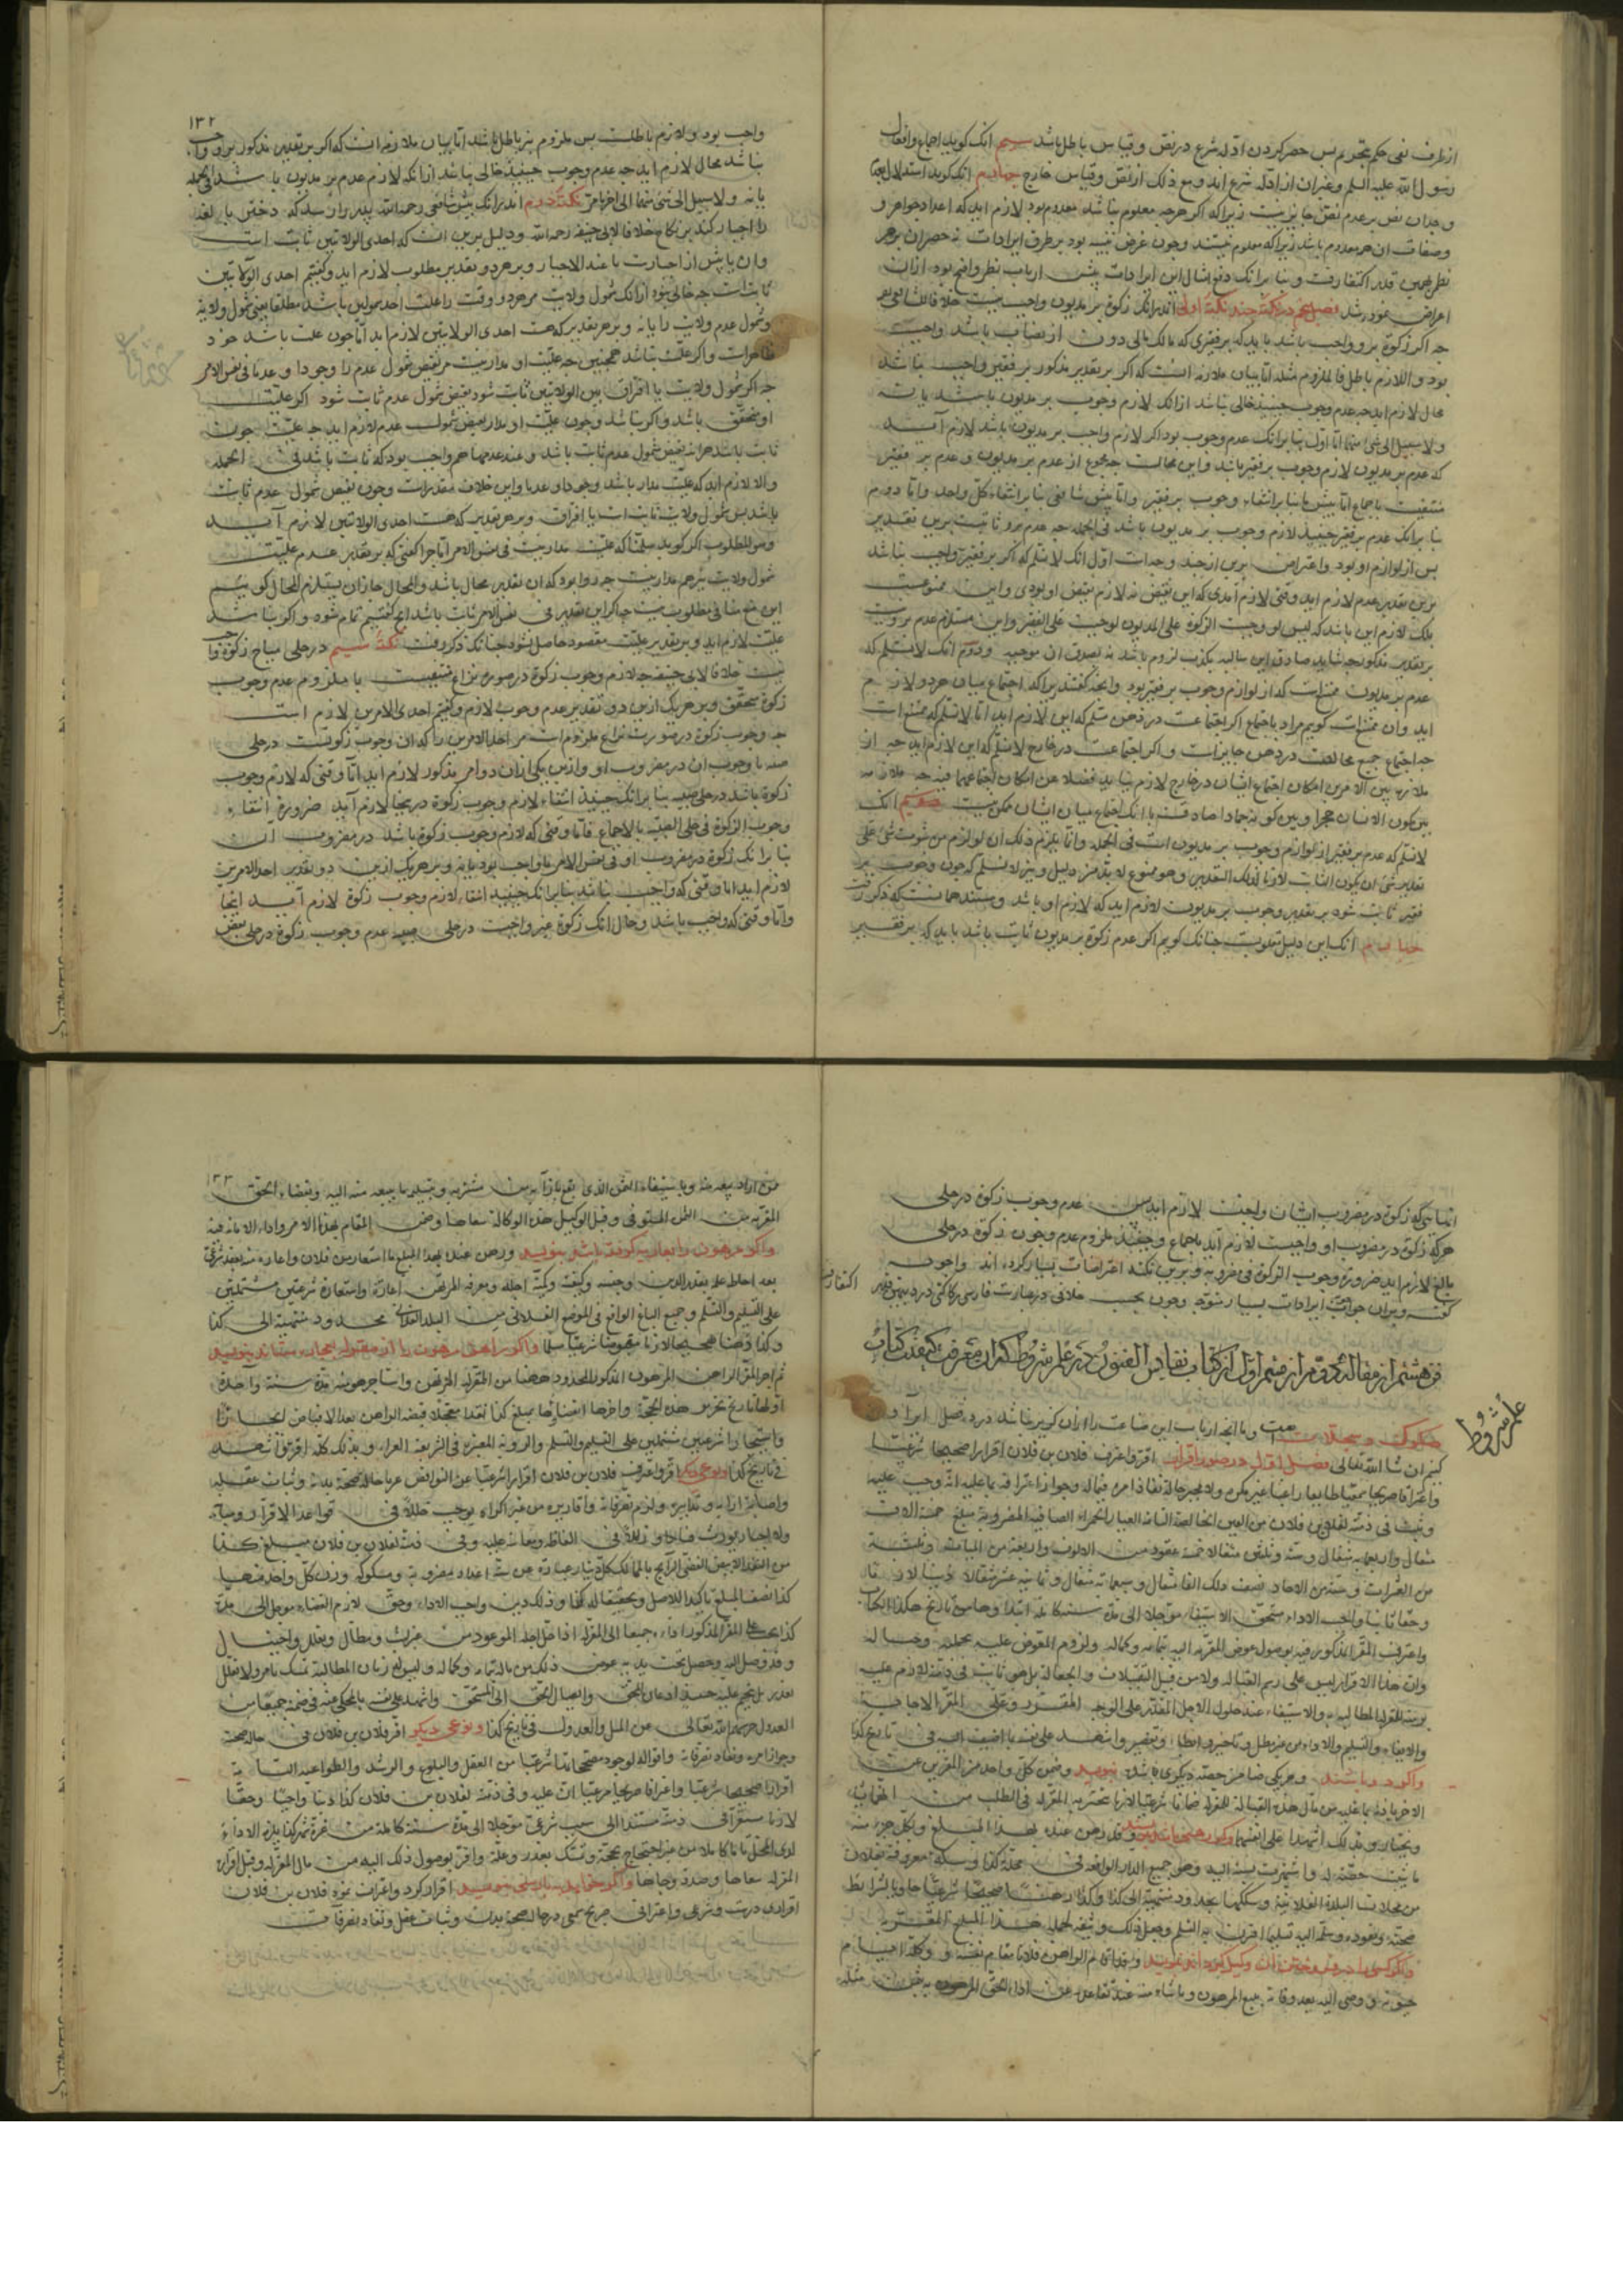 از طرف نفی حکم تحریم پس حصر کردن ادله شرع در نص و قیاس باطل باشد سیم انک کوید اجماع وافعال
رسول الله علیه السلم وغیران از ادله شرع اند ومع ذلک از نص وقیاس خارج چهارم انک کوید استدلال
وجدان نص بر عدم نص جایز نیست زیرا که اکر هرچه معلوم نباشد معدوم بود لازم اید که اعداد جواهر و
وصفات ان هم معدوم باشد زیرا که معلوم نیستند وچون غرض تنبیه بود بر طرف ایرادات نه حصر ان بر هر
نظر بهمین قدر اکتفا رفت و بنا برانک دفع امثال این ایرادات پیش ارباب نظر واضح بود ازان
اعراض نموده شد فصل پنجم در نکته چند نکته اولی اندرانک زکوة بر مدیون واجب نیست خلافا للشافعی
چه اکر زکوة برو واجب باشد باید که بر فقیری که مالک مالی دون از نصاب باشد واجب
بود و اللازم باطل فالملزوم مثله اما بیان ملازمه انست که اکر بر تقدیر مذکور بر فقیر واجب نباشد
محال لازم اید چه عدم وجوب حینئذ خالی نباشد ازانک لازم وجوب بر مدیون باشد یا نه
ولا سبیل الی شئ منهما اما اول بنا برانک عدم وجوب بود اکر لازم واجب بر مدیون باشد لازم آید
که عدم بر مدیون لازم وجوب بر فقیر باشد واین محالست چه مجموع از عدم بر مدیون وعدم بر فقیر
منتفیست باجماع اما پیش ما بنا بر انتفاء وجوب بر فقیر واما پیش شافعی بنا بر انتفاء کل واحد واما دوم
بنا برانک عدم بر فقیر حینئذ لازم وجوب بر مدیون باشد فی الجمله چه عدم برو ثابتست برین تقدیر
پس از لوازم او بود واعتراض برین از چند وجه است اول انک لانسلم که اکر بر فقیر واجب نباشد
برین تقدیر عدم لازم اید وقتی لازم آمدی که این نقیض نه لازم نقیض او بودی واین ممنوعست
بلک لازم این باشد که لیس لو وجبت الزکوة علی المدیون لوجبت علی الفقیر واین مستلزم عدم برو نیست
بر تقدیر مذکور چه شاید صادق این سالبه بکذب لزوم باشد نه بصدق ان موجبه ودوم انک لانسلم که
عدم بر مدیون ممتنع است که از لوازم وجوب بر فقیر بود وانچه کفتند زیرا که اجتماع میان هر دو لازم
اید وان ممتنع است کویم مراد باجتماع اکر اجتماعست در ذهن مسلم که این لازم اید اما لانسلم که ممتنع است
چه اجتماع جمیع محالات در ذهن جایز است واکر اجتماعست در خارج لانسلم که این لازم اید چه از
ملازمه بین الامرین امکان اجتماع ایشان در خارج لازم نیاید فضلا عن امکان اجتماعهما فیه چه ملازمه
بین کون الانسان حجرا وبین کونه جمادا صادقست با انک اجتماع میان ایشان ممکن نیست سیم انک
لانسلم که عدم بر فقیر از لوازم وجوب بر مدیون است فی الجمله وانما یلزم ذلک ان لو لزم من ثبوت شئ علی
تقدیر شئ ان یکون الثابت لازما لذلک التقدیر وهو ممنوع لابد من دلیل ونیز لانسلم که چون وجوب بر
فقیر ثابت شود بر تقدیر وجوب بر مدیون لازم اید که لازم او باشد ومستند همانست که ذکر رفت
چهارم انک این دلیل مقلوبست چنانک کویم اکر عدم زکوة بر مدیون ثابت باشد باید که بر فقیر
۱۳۲
واجب بود ولازم باطلست پس ملزوم نیز باطل باشد اما بیان ملازمه انست که اکر بر تقدیر مذکور برو واجب
نباشد محال لازم اید چه عدم وجوب حینئذ خالی نباشد ازانکه لازم عدم بر مدیون باشد فی الجمله
یا نه ولا سبیل الی شئ منهما الی اخر ما مر نکته دوم اندرانک پیش شافعی رحمه الله پدر را رسد که دختر بالغه
را اجبار کند بر نکاح خلافا لابی حنیفه رحمه الله ودلیل برین انست که احدی الولایتین ثابت است
وان یا پیش از اجبارست یا عند الاجبار وبر هر دو تقدیر مطلوب لازم اید وکفتیم احدی الولایتین
ثابت است چه خالی نبود ازانک شمول ولایت هر دو وقت را علت احد شمولین باشد مطلقا یعنی شمول ولایة
وشمول عدم ولایت را یا نه وبر هر تقدیر که هست احدی الولایتین لازم اید اما چون علت باشد خود
ظاهرست واکر علت نباشد همچنین چه علیت او مدار نیست مر نقیض شمول عدم را وجودا وعدما فی نفس الامر
چه اکر شمول ولایت یا افتراق بین الولایتین ثابت شود نقیض شمول عدم ثابت شود اکر علیت
او متحقق باشد واکر نباشد وچون علیت او مدار نقیض شمول عدم لازم اید چه علیت چون
ثابت باشد هرآینه نقیض شمول عدم ثابت باشد وعند عدمها هم واجب بود که ثابت باشد فی الجمله
والا لازم اید که علیت مدار باشد وجودا وعدما واین خلاف مقدرست وچون نقیض شمول عدم ثابت
باشد پس شمول ولایت ثابت است یا افتراق وبر هر تقدیر که هست احدی الولایتین لازم آید
وهو المطلوب اکر کوید سلمنا که علیت مدار نیست فی نفس الامر اما چرا کفتی که بر تقدیر عدم علیت
شمول ولایت نیز هم مدار نیست چه روا بود که ان تقدیر محال باشد والمحال جاز ان یستلزم المحال کوییم
این منع منافی مطلوب نیست چه اکر این تقدیر فی نفس الامر ثابت باشد انچ کفتیم تمام شود واکر نباشد
علیت لازم اید وبر تقدیر علیت مقصود حاصل شود چنانک ذکر رفت نکته سیم در حلی مباح زکوة واجب
نیست خلافا لابی حنیفه چه لازم وجوب زکوة در صورت نزاع منتفیست یا ملزوم عدم وجوب
زکوة متحقق وبر هر یک ازین دو تقدیر عدم وجوب لازم وکفتیم احدی الامرین لازم است
چه وجوب زکوة در صورت نزاع ملزومست مر احد الامرین را که ان وجوب زکوتست در حلی
صبیه یا وجوب ان در مضروب او وازین یکی ازان دو امر مذکور لازم اید اما وقتی که لازم وجوب
زکوة باشد در حلی صبیه بنا برانک حینئذ انتفاء لازم وجوب زکوة درینجا لازم آید ضرورة انتفاء
وجوب الزکوة فی حلی الصبیه بالاجماع فاما وقتی که لازم وجوب زکوة باشد در مضروب آن
بنا برانک زکوة در مضروب او فی نفس الامر یا واجب بود یا نه وبر هر یک ازین دو تقدیر احد الامرین
لازم اید اما وقتی که واجب نباشد بنا برانک حینئذ انتفاء لازم وجوب زکوة لازم آید اینجا
واما وقتی که واجب باشد وحال انک زکوة غیر واجبست در حلی صبیه عدم وجوب زکوة در حلی بعض
هر که زکوة در مضروب او واجبست لازم آید باجماع وحینئذ ملزوم عدم وجوب زکوة در حلی
بالغ لازم اید ضرورة وجوب الزکوة فی مضروبه وبرین نکته اعتراضات بسیار کرده اند واجوبه
کفته وبران جوابها ایرادات بسیار شود وچون بحسب خلافی در عبارت فارسی رکاکتی دارد بهمین قدر اکتفا رفت
فن هشتم از مقاله دوم از قسم اول از کتاب نفایس الفنون در علم شروط که ان معرفت کیفیت کتاب
علم شروط
صکوک وسجلاتست وما انچه ارباب این صناعت را ازان کزیر نباشد در ده فصل ایراد
کنیم ان شا الله تعالی فصل اول در صور اقرار اقر واعترف فلان بن فلان اقرارا صحیحا شرعیا
واعترافا صریحا سمعیا طایعا راغبا غیر مکره ولا مجبر حالة نفاذ امره فیماله وجواز اعترافه بما علیه انه وجب علیه
وثبت فی ذمته لفلان بن فلان من العین الخالصة التامة العیار الحمراء الصافیة المضروبة مبلغ خمسة الاف
مثقال واربعمایه مثقال وستة وثلثین مثقالا خمسة عقود من الالوف واربعة من المیات وثلثة
من العشرات وستة من الاحاد نصف ذلک الفا مثقال وسبعمایة مثقال وثمانیة عشر مثقالا دینا لازما
وحقا ثابتا واجب الاداء مستحق الاستیفاء مؤجلا الی مدة سنة کاملة ابتداوها من تاریخ هذا الکتاب
واعترف المقر المذکور فیه بوصول عوض المقر به الیه بتمامه وکماله ولزوم المعوض علیه بجملته وحساله
وان هذا الاقرار لیس علی رسم القبالة ولا من قبل التقبلات والجعالة بل هو ثابت فی ذمته لازم علیه
یوجبه للمقر له المطالبة والاستیفاء عند حلول الاجل المقدر علی الوجه المقرر وعلی المقر الاجابة
والایفاء والتسلیم والاداء من غیر مطل وتاخیر وابطاء وتقصیر واشهد علی نفسه بما اضیف الیه فی تاریخ کذا
واکر دو باشند وهر یکی ضامن حصه دیکری باشد بنویسد وضمن کل واحد من المقرین عن
الاخر باذنه ما علیه من مال هذه القبالة للمقر له ضمانا شرعیا لازما
وبذلک اشهدا علی انفسهما وکر رهنی باشد بنویسد وقد رهن عنده بهذا المبلغ وبکل جزء منه
ما ثبت حقیته له واشتهرت نسبته الیه وهو جمیع الدار الواقعة فی محلة کذا وسکة معروفة بفلان
من محلات البلدة الفلانیة وسککها بحد ود منتهیة الی کذا وکذا رهنا صحیحا شرعیا حاویا لشرایط
صحته ونفوذه وسلمه الیه تسلیما اقترن به التسلم وجعل ذلک وثیقة لجملة هذا المبلغ المقر به
واکر کسی را در فروختن ان وکیل کرده اند بنویسد وقد اقام الراهن فلانا مقام نفسه ووکله ایام
حیوته ووصی الیه بعد وفاته ببیع المرهون
۱۳۳
المقر به من الثمن المستوفی وقبل الوکیل هذه الوکالة سماعا وضمن القیام بهذا الامر واداء الامانة فیه
واکر مرهون را بعاریه کرفته باشد بنویسد ورهن عنده بهذا المبلغ ما استعاره من فلان واعاره منه بعقد شرعی
بعد احاطة علمه بقدر الدین وجنسه وکیفیته وکمیة اجله ومعرفة المرتهن اعارة واستعارة شرعیتین مشتملتین
علی التسلیم والتسلم وجمیع الباغ الواقع فی الموضع الفلانی من البلد الفلانی بحدود منتهیة الی کذا
وکذا رهنا صحیحا لازما مقبوضا شرعیا مسلما واکر راهن مرهون را از مقر له باجاره ستاند بنویسد
ثم اجر المقر الراهن المرهون المذکور المحدود هنا من المقر له المرتهن واستاجر هو منه مدة سنة واحدة
اولها تاریخ تحریر هذه الحجة واخرها انقضاؤها بمبلغ کذا نقدا معجلا قبضه الراهن بعد الاقباض ایجارا
واستیجارا شرعیین مشتملین علی التسلیم والتسلم والرویة المعتبرة فی الشریعة الغراء وبذلک کله اقر واشهد
فی تاریخ کذا ونوعی دیکر اقر واعترف فلان بن فلان اقرارا شرعیا عن النواقض عریا حالة صحة بدنه وثبات عقله
واصابة ارائه وتدابیره ولزوم تصرفاته واقاریره من غیر اکراه یوجب خللا فی قواعد الاقرار ومبانیه
ولا اجبار یورث فسادا وزللا فی الفاظه ومعانیه علیه وفی ذمته لفلان بن فلان مبلغ کذا
من النقد الابیض الفضی الرایج بالممالک کل دینار عبارة عن ستة اعداد مضروبة ومسکوکة وزن کل واحد منها
کذا نصف المبلغ تاکیدا للاصل وتحقیقا له کذا وذلک دین واجب الاداء وحق لازم القضاء مؤجل الی مدة
کذا یجب علی المقر المذکور اداؤه جمیعا الی المقر له اذا حل اجله الموعود من غیر لبث ومطال وتعلل واحتیال
وقد وصل الیه وحصل تحت یدیه عوض ذلک من ماله بتمامه وکماله ولیس له زمان المطالبة تمسک بامر ولا تعلل
بعذر بل یتحتم علیه حینئذ اذعان الحق وایصال الحق الی المستحق واشهد علی نفسه بالمحکی عنه فی ضمنه جمیعا من
العدول حرسهم الله تعالی عن المیل والعدول فی تاریخ کذا ونوعی دیکر اقر فلان بن فلان فی حالة صحة
وجواز امره ونفاذ تصرفاته واقواله لوجود مصححاتها شرعیا من العقل والبلوغ والرشد والطواعیة التامة
اقرارا صحیحا شرعیا واعترافا صریحا مرعیا ان علیه وفی ذمته لفلان بن فلان کذا دینا واجبا وحقا
لازما مستقرا فی ذمته مستندا الی سبب شرعی مؤجلا الی مدة سنة کاملة من غرة شهر کذا یلزمه الاداء
لدی المحل تاما کاملا من غیر احتجاج بحجة وتمسک بعذر وعلة واقر بوصول ذلک الیه من مال المقر له وقبل اقراره
المقر له سماعا وصدقه وجاها واکر خواهد بپارسی بنویسد اقرار کرد واعتراف نمود فلان بن فلان
اقراری درست وشرعی واعترافی صریح سمعی در حال صحت بدن وثبات عقل ونفاذ تصرفات